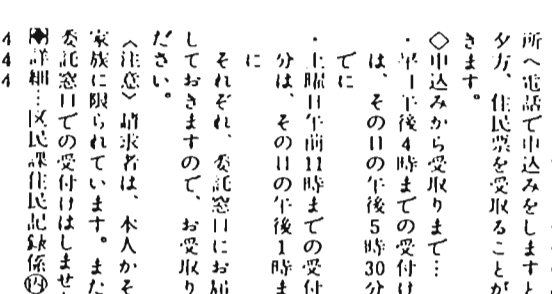 所へ電話で申込みをしますと
夕方、住民票を受取ることが
きます。
◇申込みから受取りまで…
・平日午後4時までの受付け
は、その日の午後5時30分
でに
・土曜日午前11時までの受付
分は、その日の午後1時ま
に
それぞれ、委託窓口にお届
しておきますので、お受取り
ださい。
〈注意〉請求者は、本人かそ
家族に限られています。また
委託窓口での受付けはしませ
詳細…区民課住民記録係㊃
444